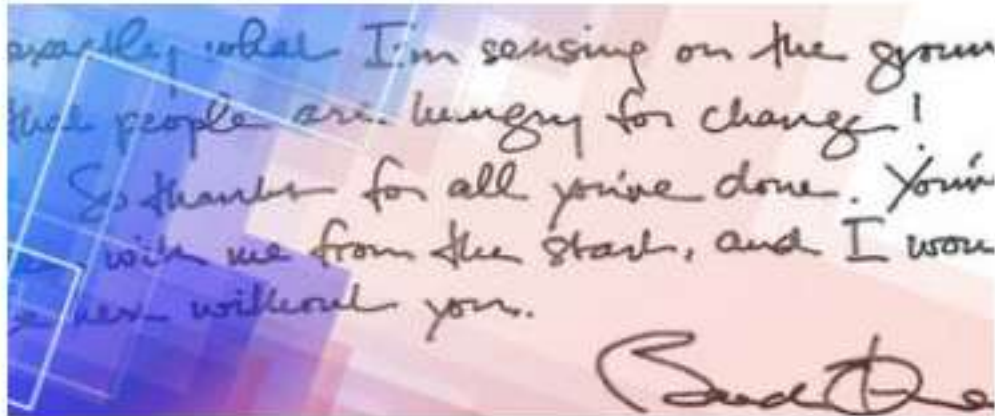 exactly what I'm sensing on the groun
that people are hungry for change!
So thanks for all you've done. You've
with me from the start, and I wou
here without you.